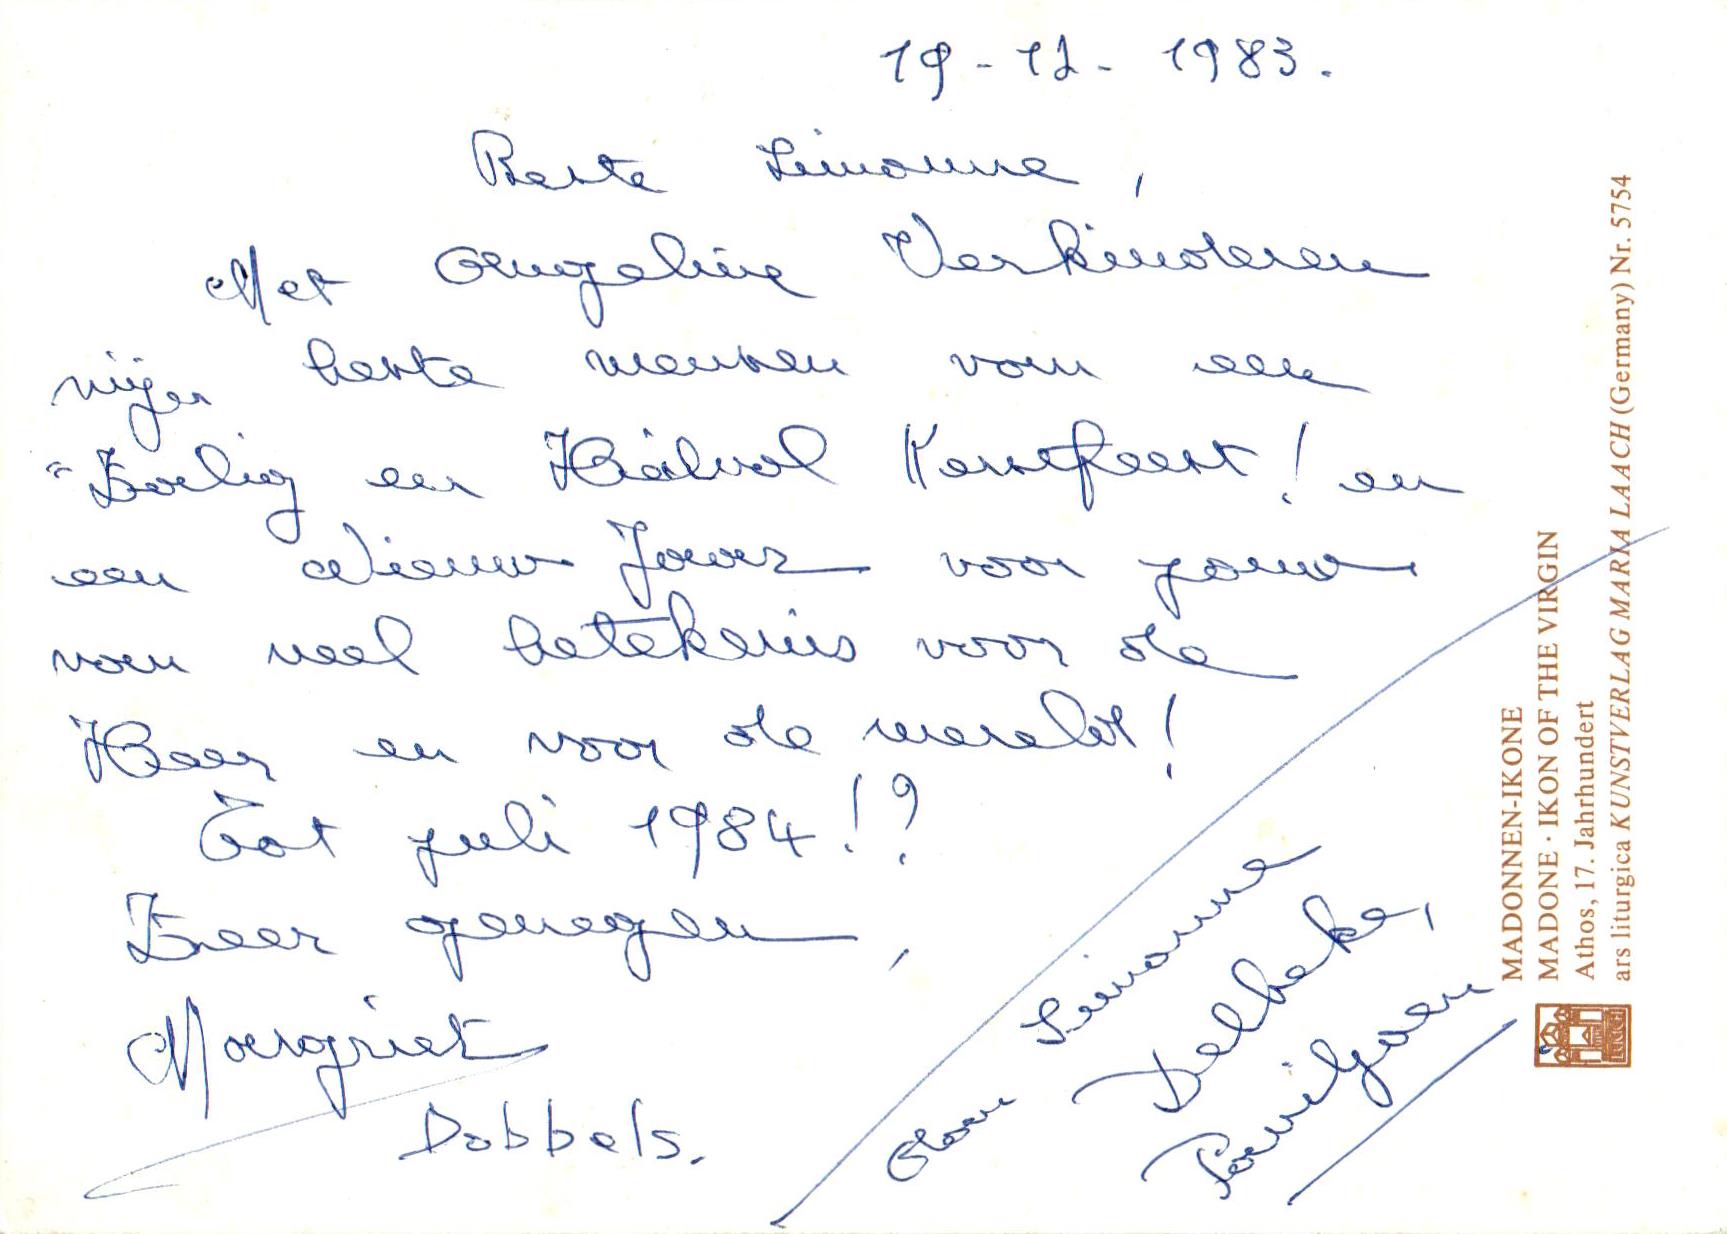 19-12-1983.
Beste Simonne,
Met Angeline Verkinderen
mijn beste wensen van een
"Zalig en Heilvol Kerstfeest! en
een Nieuw Jaar voor jouw
van veel betekenis voor de
Heer en voor de wereld!
Tot juli 1984!?
Zeer genegen,
Margriet
Dobbels.
Aan Simonne
Delbeke,
MADONNEN-IKONE
MADONE · IKON OF THE VIRGIN
Athos, 17. Jahrhundert
ars liturgica KUNSTVERLAG MARIA LAACH (Germany) Nr. 5754